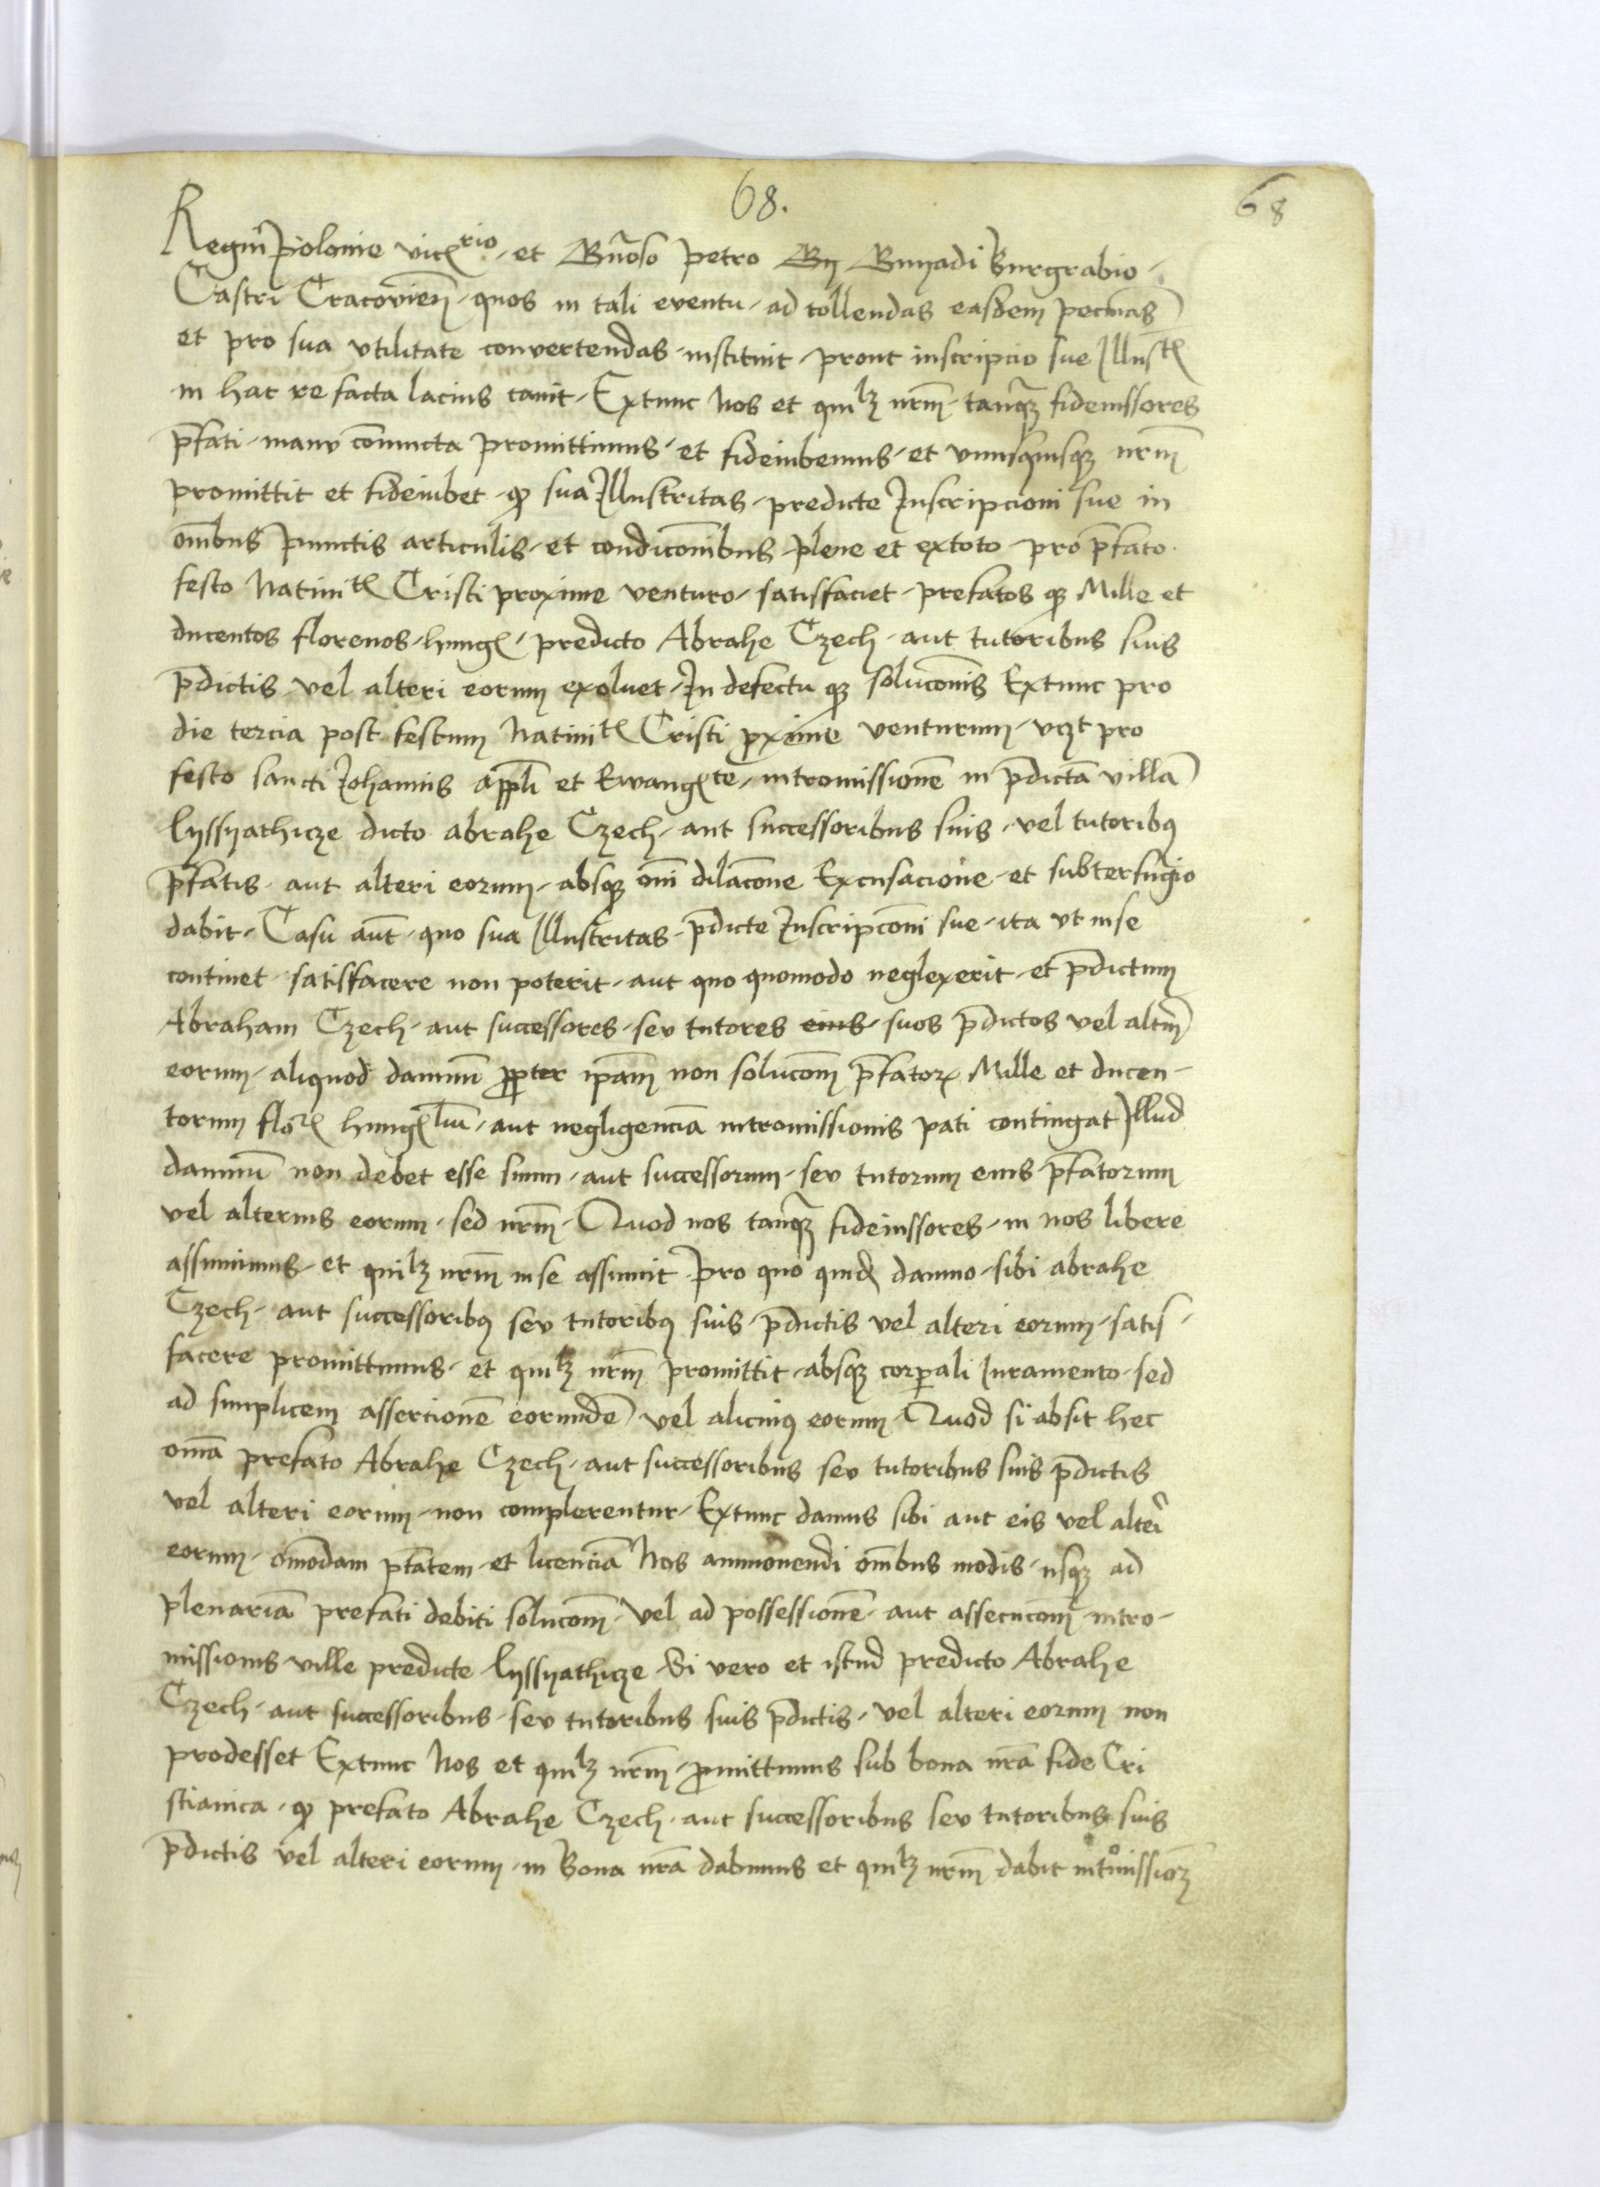 68.
68
Regni Polonie vicꝭrio et Gn̄oso Petro Bn Bnyadi Burgrabio
Castri Cracovien̄ quos in tali eventu ad tollendas easdem pecūias
et pro sua utilitate convertendas instituit prout inscripcio sue Illustꝭ
in hac re facta lacius canit Extunc nos et quilꝫ nr̄m tanqꝫ fideiussores
p̄fati manu coniuncta promittimus et fideiubemus et unusquisqꝫ nr̄m
promittit et fideiubet ꝙ sua Illustritas predicte Inscripcioni sue in
om̄ibus punctis articulis et condicōnibus plene et extoto pro p̄fato
festo Natiuitꝭ Cristi proxime venturo satisfaciet prefatos qꝫ Mille et
ducentos florenos hungꝭ predicto Abrahe Czech aut tutoribus suis
p̄dictis vel alteri eorum exoluet In defectu qꝫ solucōnis Extunc pro
die tercia post festum Natiuitꝭ Cristi proxime venturum vcꝫt pro
festo sancti Johannis appl̄i et Ewangꝭte intromissionē in p̄dictā villā
lyssyathicze dicto abrahe Czech aut successoribus suis vel tutoribꝰ
p̄fatis aut alteri eorum absqꝫ om̄i dilacōne Excusacione et subterfugio
dabit Casu aūt quo sua Illustritas p̄dicte Inscripcōni sue ita ut inse
continet satisfacere non poterit aut quo quomodo neglexerit et p̄dictum
Abraham Czech aut successores seu tutores eius suos p̄dictos vel altm̄
eorum aliquod damnū propter ip̄am non solucōm p̄fatorꝭ Mille et ducen-
torum florꝭ hungꝭliū aut negligenciā intromissionis pati contingat Illud
damnū non debet esse suum aut successorum seu tutorum eius p̄fatorum
vel alterius eorum sed nr̄m Quod nos tanqꝫ fideiussores in nos libere
assumimus et quilꝫ nr̄m inse assumit Pro quo quidꝭ damno sibi abrahe
Czech aut successoribꝰ seu tutoribꝰ suis p̄dictis vel alteri eorum satis-
facere promittimus et quilꝫ nr̄m promittit absqꝫ corꝑali Iuramento sed
ad simplicem assertionē eorundē vel alicuiꝰ eorum Quod si absit hec
om̄ia prefato Abrahe Czech aut successoribus seu tutoribus suis p̄dictis
vel alteri eorum non complerentur Extunc damus sibi aut eis vel alteri
eorum om̄odam p̄tatem et licenciā Nos ammonendi om̄bus modis usqꝫ ad
plenariā prefati debiti solucōm vel ad possessionē aut assecucōm intro-
missionis ville predicte lyssyathicze Si vero et istud predicto Abrahe
Czech aut successoribus seu tutoribus suis p̄dictis vel alteri eorum non
prodesset Extunc Nos et quilꝫ nr̄m promittimus sub bona nr̄a fide Cri
stianica ꝙ prefato Abrahe Czech aut successoribus seu tutoribus suis
p̄dictis vel alteri eorum in Bona nr̄a dabimus et quilꝫ nr̄m dabit intºmissioꝫ